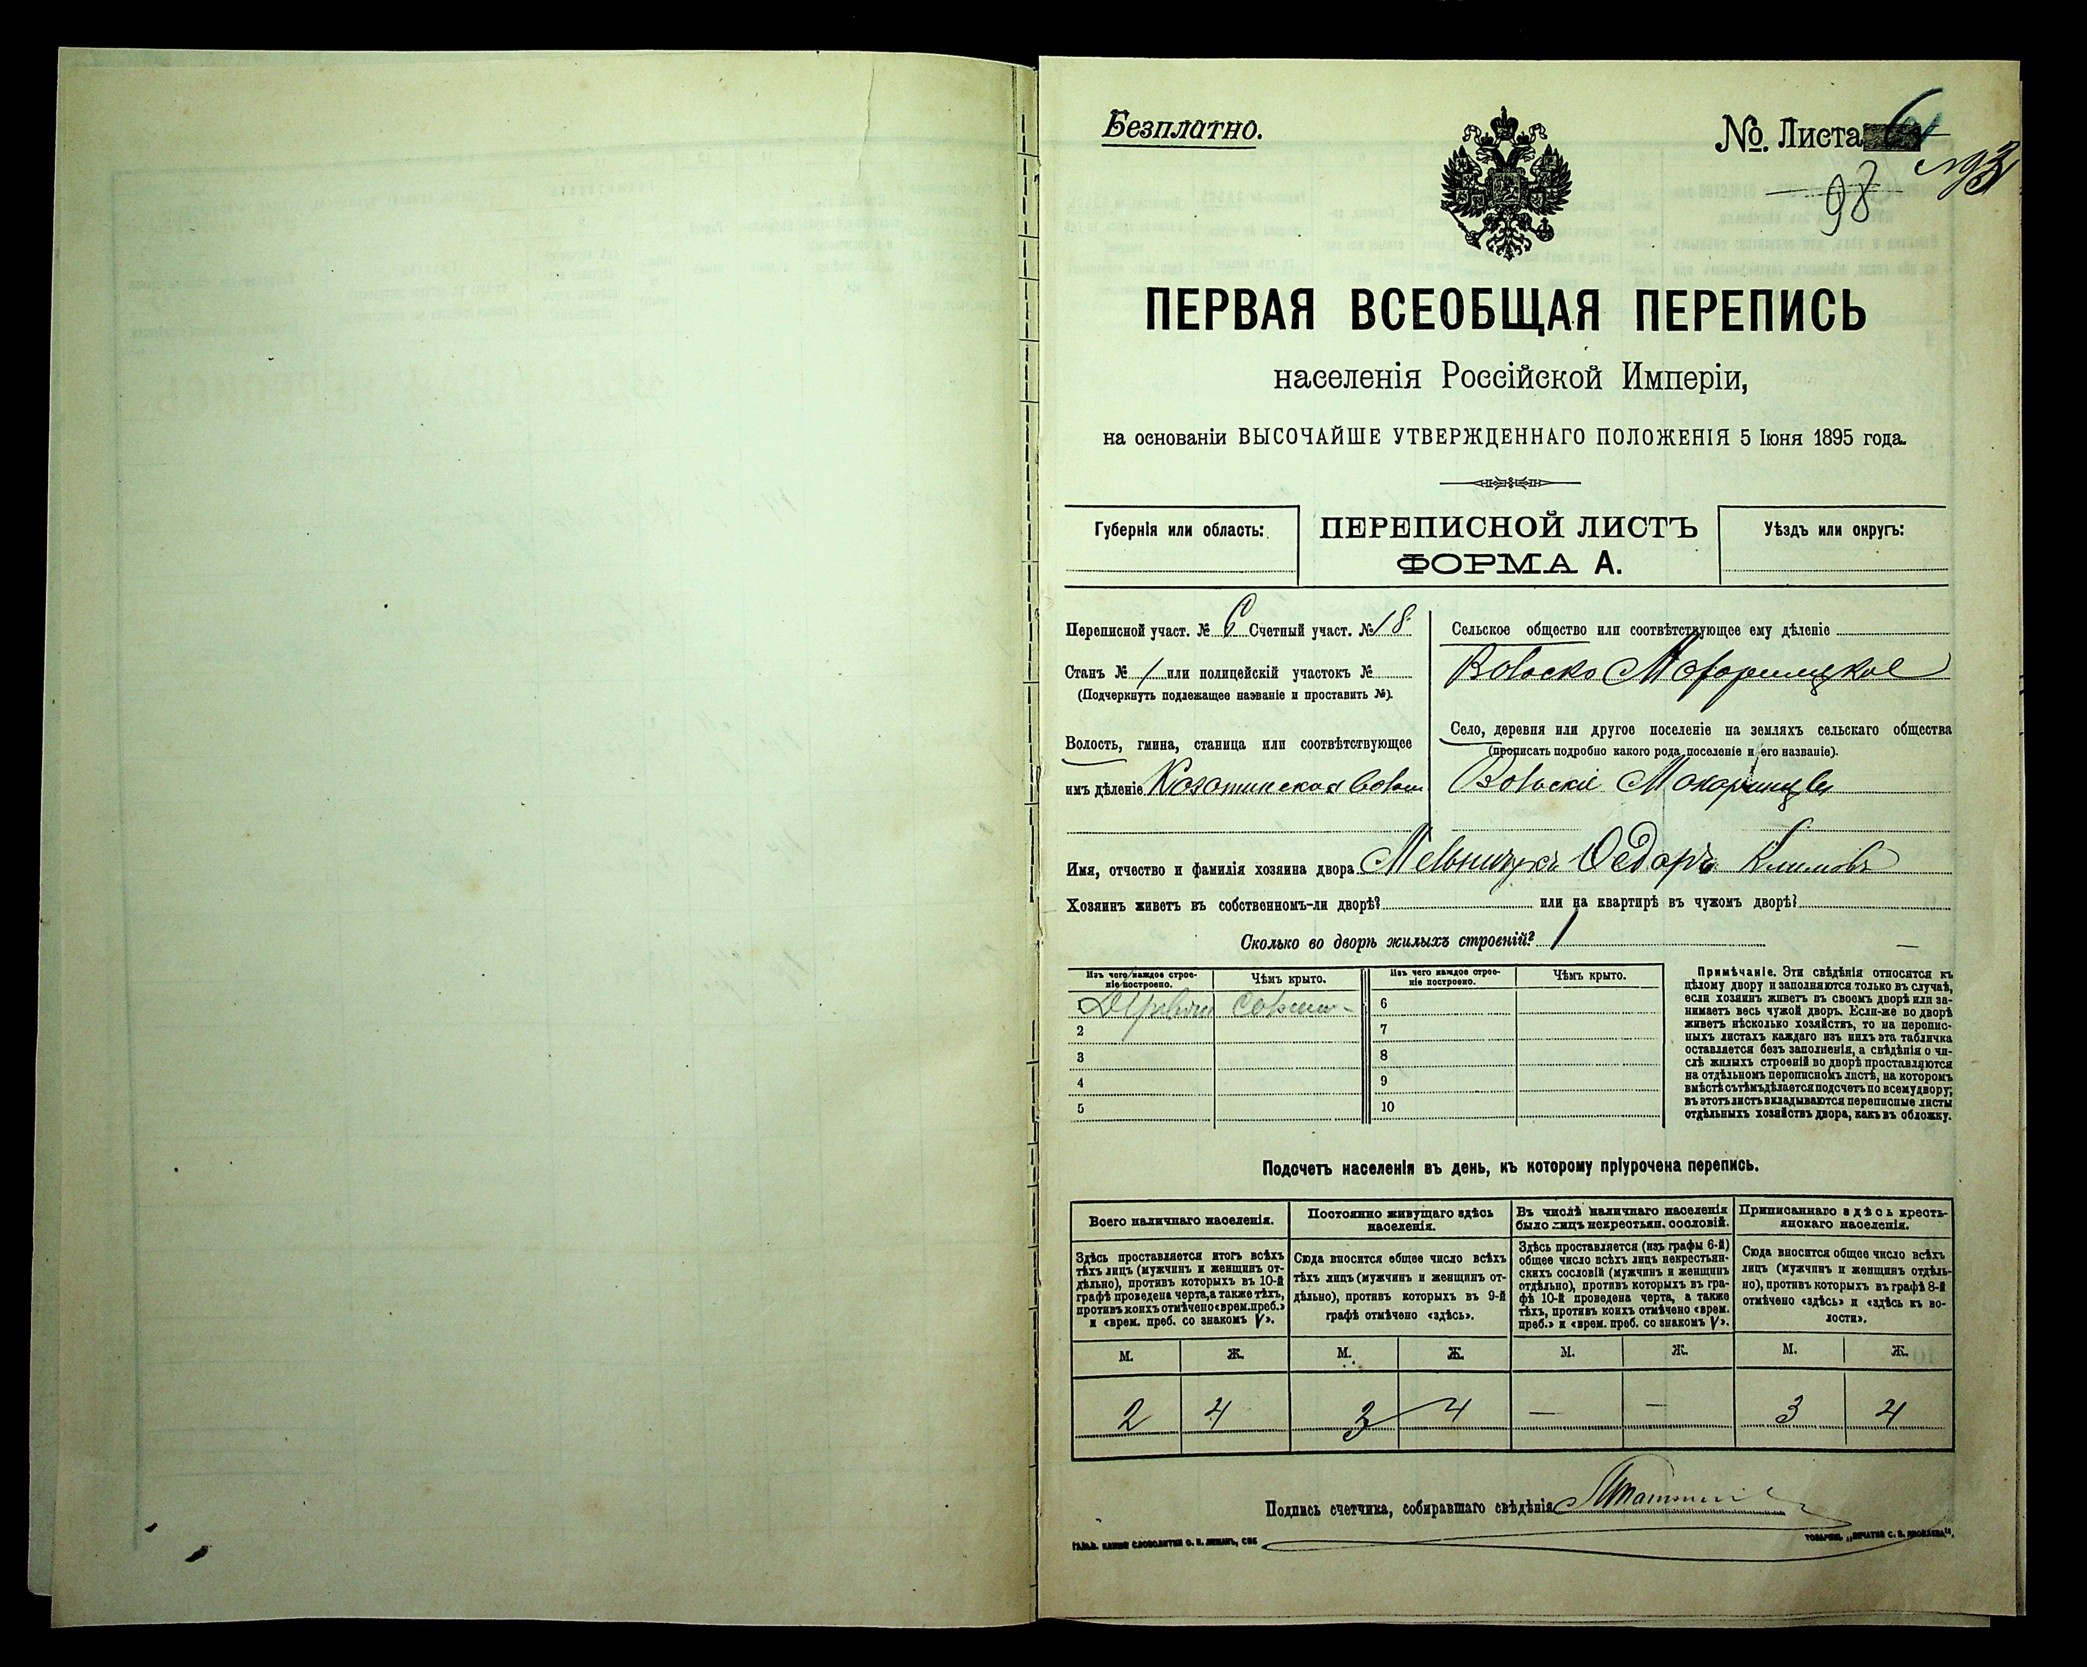 Безплатно.
№. Листа
98
ПЕРВАЯ ВСЕОБЩАЯ ПЕРЕПИСЬ
населенія Россійской Имперіи,
на основаніи ВЫСОЧАЙШЕ УТВЕРЖДЕННАГО ПОЛОЖЕНІЯ 5 Іюня 1895 года.
Губернія или область:
ПЕРЕПИСНОЙ ЛИСТЪ
ФОРМА А.
Уѣздъ или округъ:
Переписной участ. № 6 Счетный участ. № 18
Станъ № 1 или полицейскій участокъ №
(Подчеркнуть подлежащее названіе и проставить №).
Волость, гмина, станица или соотвѣтствующее
имъ дѣленіе Козатинская
Сельское общество или соотвѣтствующее ему дѣленіе
Село, деревня или другое поселеніе на земляхъ сельскаго общества
(прописать подробно какого рода поселеніе и его названіе).
Имя, отчество и фамилія хозяина двора Мельничукъ Ѳедоръ Климовъ
Хозяинъ живетъ въ собственномъ-ли дворѣ? или на квартирѣ въ чужомъ дворѣ?
Сколько во дворѣ жилыхъ строеній? 1
Изъ чего каждое строе-
ніе построено.
Чѣмъ крыто.
Изъ чего каждое строе-
ніе построено.
Чѣмъ крыто.
6
2
7
3
8
4
9
5
10
Примѣчаніе. Эти свѣдѣнія относятся къ
цѣлому двору и заполняются только въ случаѣ,
если хозяинъ живетъ въ своемъ дворѣ или за-
нимаетъ весь чужой дворъ. Если-же во дворѣ
живетъ нѣсколько хозяйствъ, то на перепис-
ныхъ листахъ каждаго изъ нихъ эта табличка
оставляется безъ заполненія, а свѣдѣнія о чи-
слѣ жилыхъ строеній во дворѣ проставляются
на отдѣльномъ переписномъ листѣ, на которомъ
вмѣстѣ съ тѣмъ дѣлается подсчетъ по всему двору;
въ этотъ листъ вкладываются переписные листы
отдѣльныхъ хозяйствъ двора, какъ въ обложку.
Подсчетъ населенія въ день, къ которому пріурочена перепись.
Всего наличнаго населенія.
Здѣсь проставляется итогъ всѣхъ
тѣхъ лицъ (мужчинъ и женщинъ от-
дѣльно), противъ которыхъ въ 10-й
графѣ проведена черта, а также тѣхъ,
противъ коихъ отмѣчено «врем. преб.»
и «врем. преб. со знакомъ V».
Постоянно живущаго здѣсь
населенія.
Сюда вносится общее число всѣхъ
тѣхъ лицъ (мужчинъ и женщинъ от-
дѣльно), противъ которыхъ въ 9-й
графѣ отмѣчено «здѣсь».
Въ числѣ наличнаго населенія
было лицъ некрестьян. сословій.
Здѣсь проставляется (изъ графы 6-й)
общее число всѣхъ лицъ некрестьян-
скихъ сословій (мужчинъ и женщинъ
отдѣльно), противъ которыхъ въ гра-
фѣ 10-й проведена черта, а также
тѣхъ, противъ коихъ отмѣчено «врем.
преб.» и «врем. преб. со знакомъ V».
Приписаннаго здѣсь кресть-
янскаго населенія.
Сюда вносится общее число всѣхъ
лицъ (мужчинъ и женщинъ отдѣль-
но), противъ которыхъ въ графѣ 8-й
отмѣчено «здѣсь» и «здѣсь къ во-
лости».
М. Ж. М. Ж. М. Ж. М. Ж.
2 4 3 4 — — 3 4
Подпись счетчика, собиравшаго свѣдѣнія